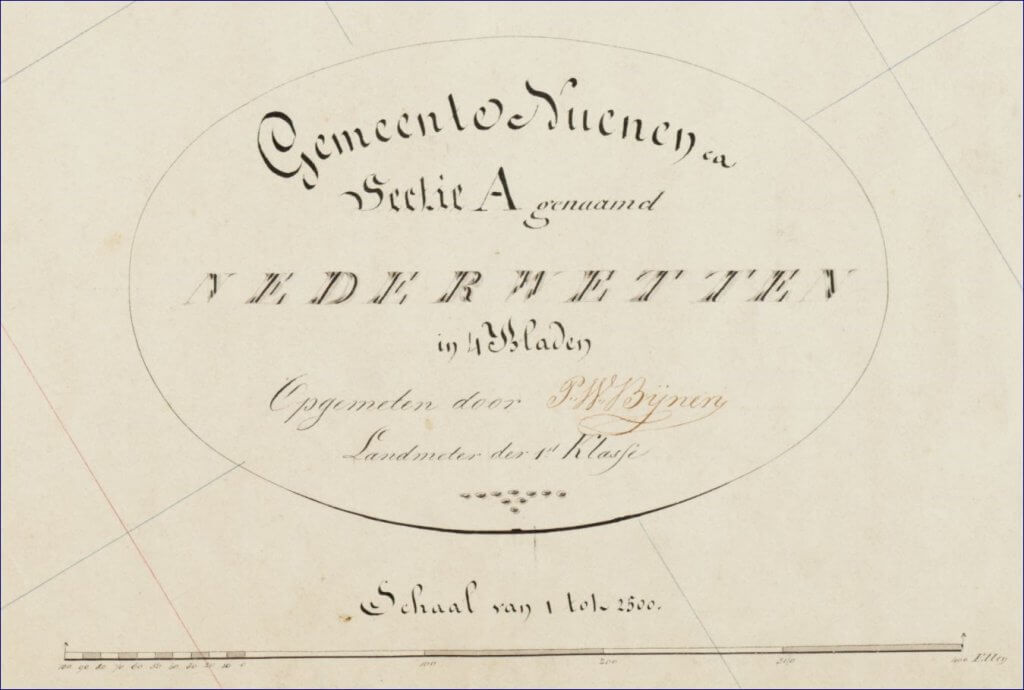 Gemeente Nuenen ca
Sectie A genaamd
NEDERWETTEN
in 4 Bladen
Opgemeten door P. W. Bijnen
Landmeter der 1e Klasse
Schaal van 1 tot 2500.
100 90 80 70 60 50 40 30 20 10 0 100 200 300 400 Ellen